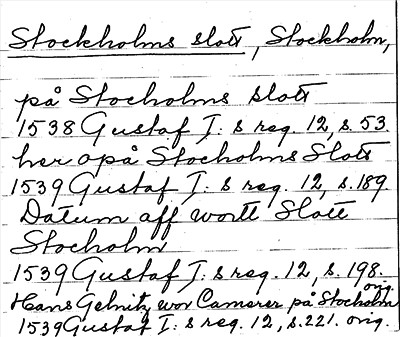 Stockholms slott, Stockholm,
på Stocholms slott
1538 Gustaf I: s reg. 12, s. 53.
her opå Stocholms Slott
1539 Gustaf I: s reg. 12, s. 189
Datum aff wortt Slott
Stocholm
1539 Gustaf I: s reg. 12, s. 198.
orig.
Hans Gelnitz wor Camerer på Stocholm
1539 Gustaf I: s reg. 12, s. 221. orig.